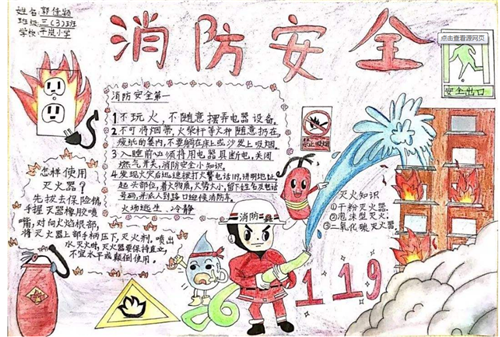 姓名
班级 三(3)班
学校
消防安全
点击查看源网页
安全出口
消防安全第一
1 不玩火,不随意摆弄电器设备。
2 不可将烟蒂,火柴杆等火种随意扔在
废纸的篓内,不要躺在床上
沙发上吸烟。
3 入睡前必须将用电器具断电,关闭
燃气开关,消防安全小知识。
4 发现火灾
迅速拨打火警电话119,讲明地址
起火部位,着火物质,火势大小,留下姓名及电话
号码,并派人到路口迎候消防车。
火场逃生,冷静
禁止吸烟
怎样使用
灭火器?
先拔去保险销
手握灭器橡胶喷
嘴,对向火焰根部,
将灭火器上部手柄压下,灭火剂,喷出
灭火时,灭火器要保持直立,
不宜水平或颠倒使用。
灭火知识
①干粉灭火器
②泡沫型灭火
③二氧化碳灭火器
消防
119